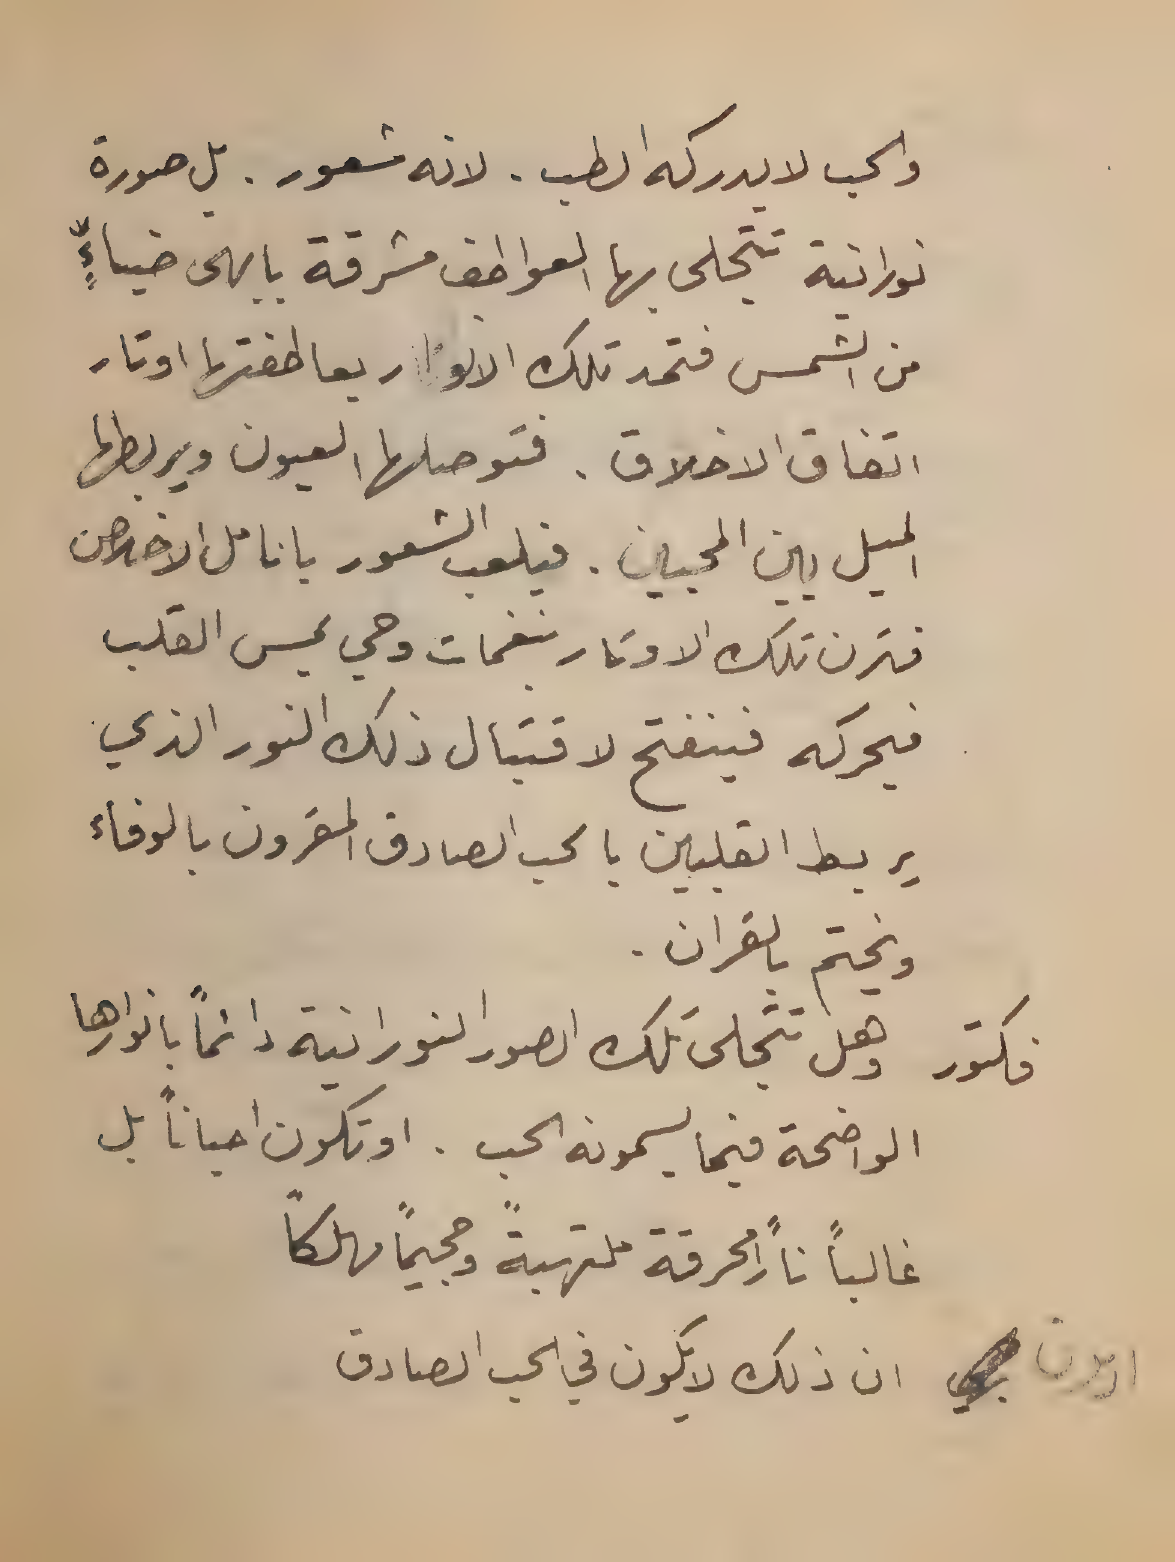 والحب لا يدركه الطب . لانه شعور . بل صورة
نورانية تتجلى بها العواطف مشرقة بابهى ضياءٍ
من الشمس فتمد تلك الانوار بعاطفتها اوتار
اتفاق الاخلاق . فتوصلها العيون ويربطها
الميل بين المحبين . فيلعب الشعور بانامل الاخلاص
فترن تلك الاوتار بنغمات وحي يحس القلب
فيحركه فينفتح لاقتبال ذلك النور الذي
يربط القلبين بالحب الصادق المقرون بالوفاء
ونختم بالقران .
فكتور وهل تتجلى تلك الصور النورانية دائماً بانوارها
الواضحة فيما يسمونه الحب . او تكون احياناً بل
غالباً ناراً محرقة ملتهبةً وجحيماً مهلكاً
ان ذلك لا يكون في الحب الصادق